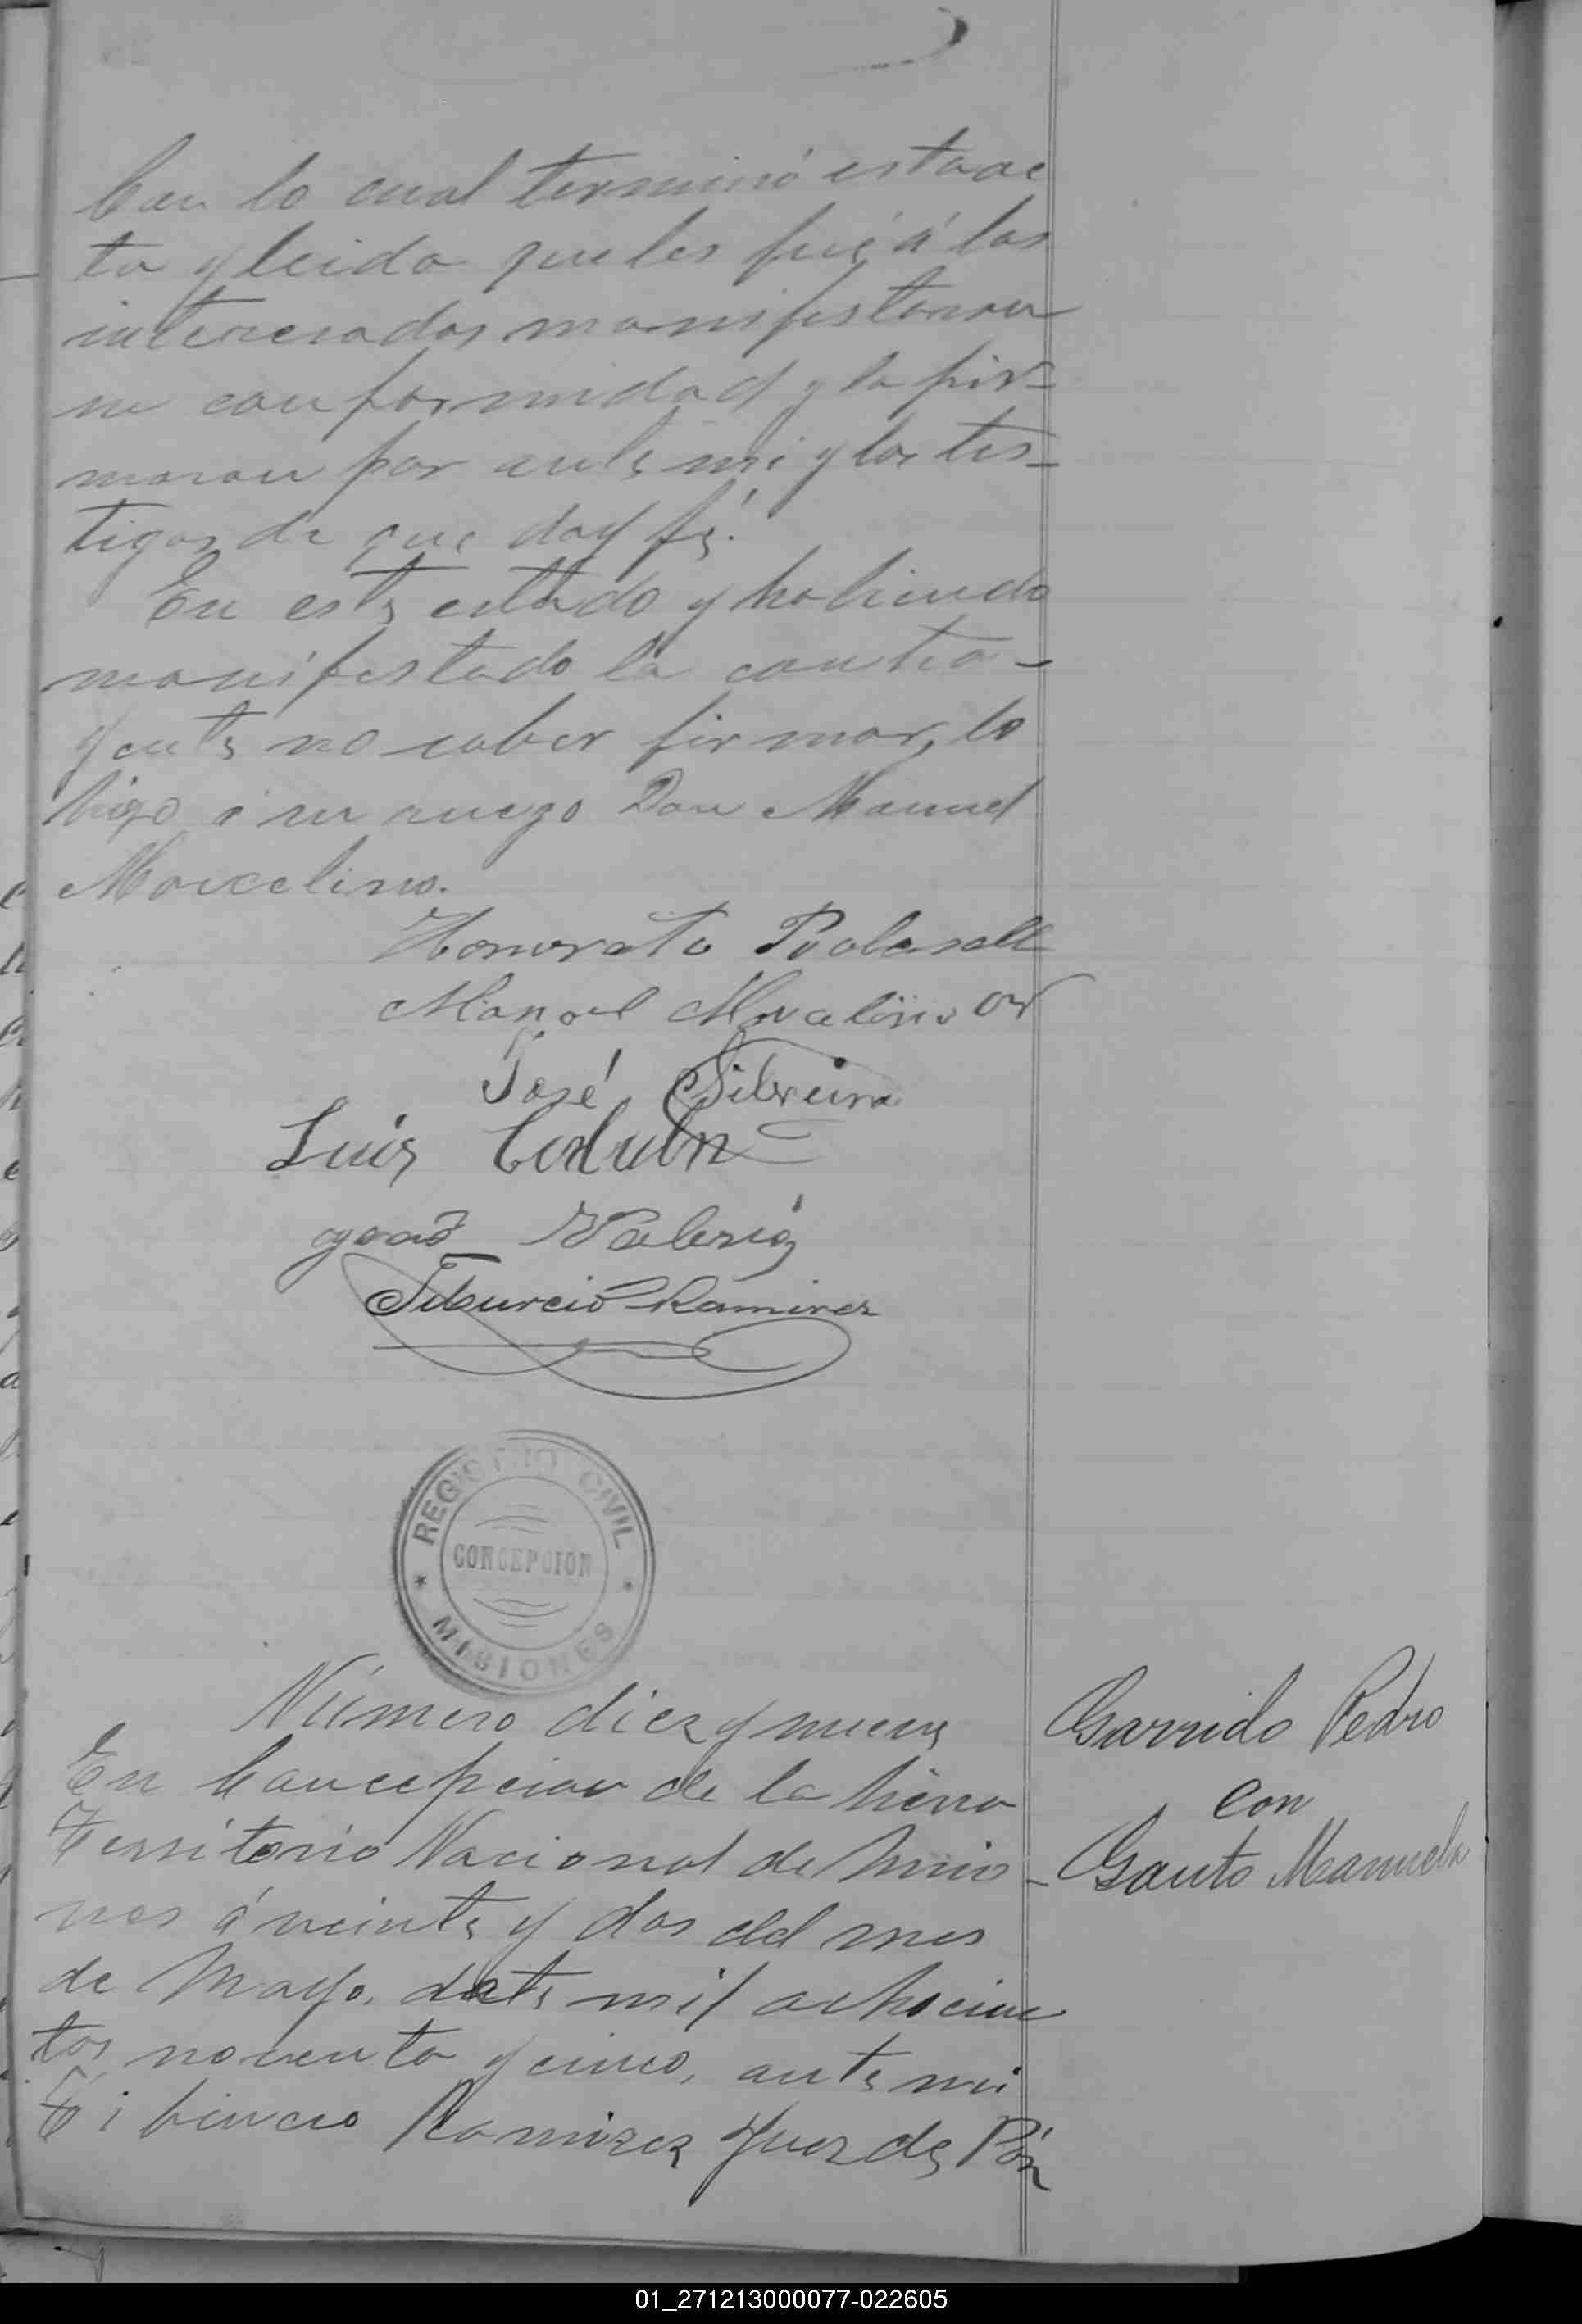 Con lo cual terminó esta ac
ta y leida que les fué á los
interesados manifestaron
su conformidad y la fir-
maron por ante mi y los tes-
tigos de que doy fé.
En este estado y habiendo
manifestado la contra-
yente no saber firmar, lo
hizo á su ruego Don Manuel
Marcelino.
Honorato
Manoel
José Silveira
Luis
Valerio
Tiburcio Ramirez
REGISTRO CIVIL
CONCEPCION
MISIONES
Número diez y nueve
Garrido Pedro
con
Gauto Manuela
En Concepcion de la Sierra
Territorio Nacional de Misio-
nes á veinte y dos del mes
de Mayo de mil ochocien
tos noventa y cinco, ante mi
Tiburcio Ramirez Juez de Páz
01_271213000077-022605